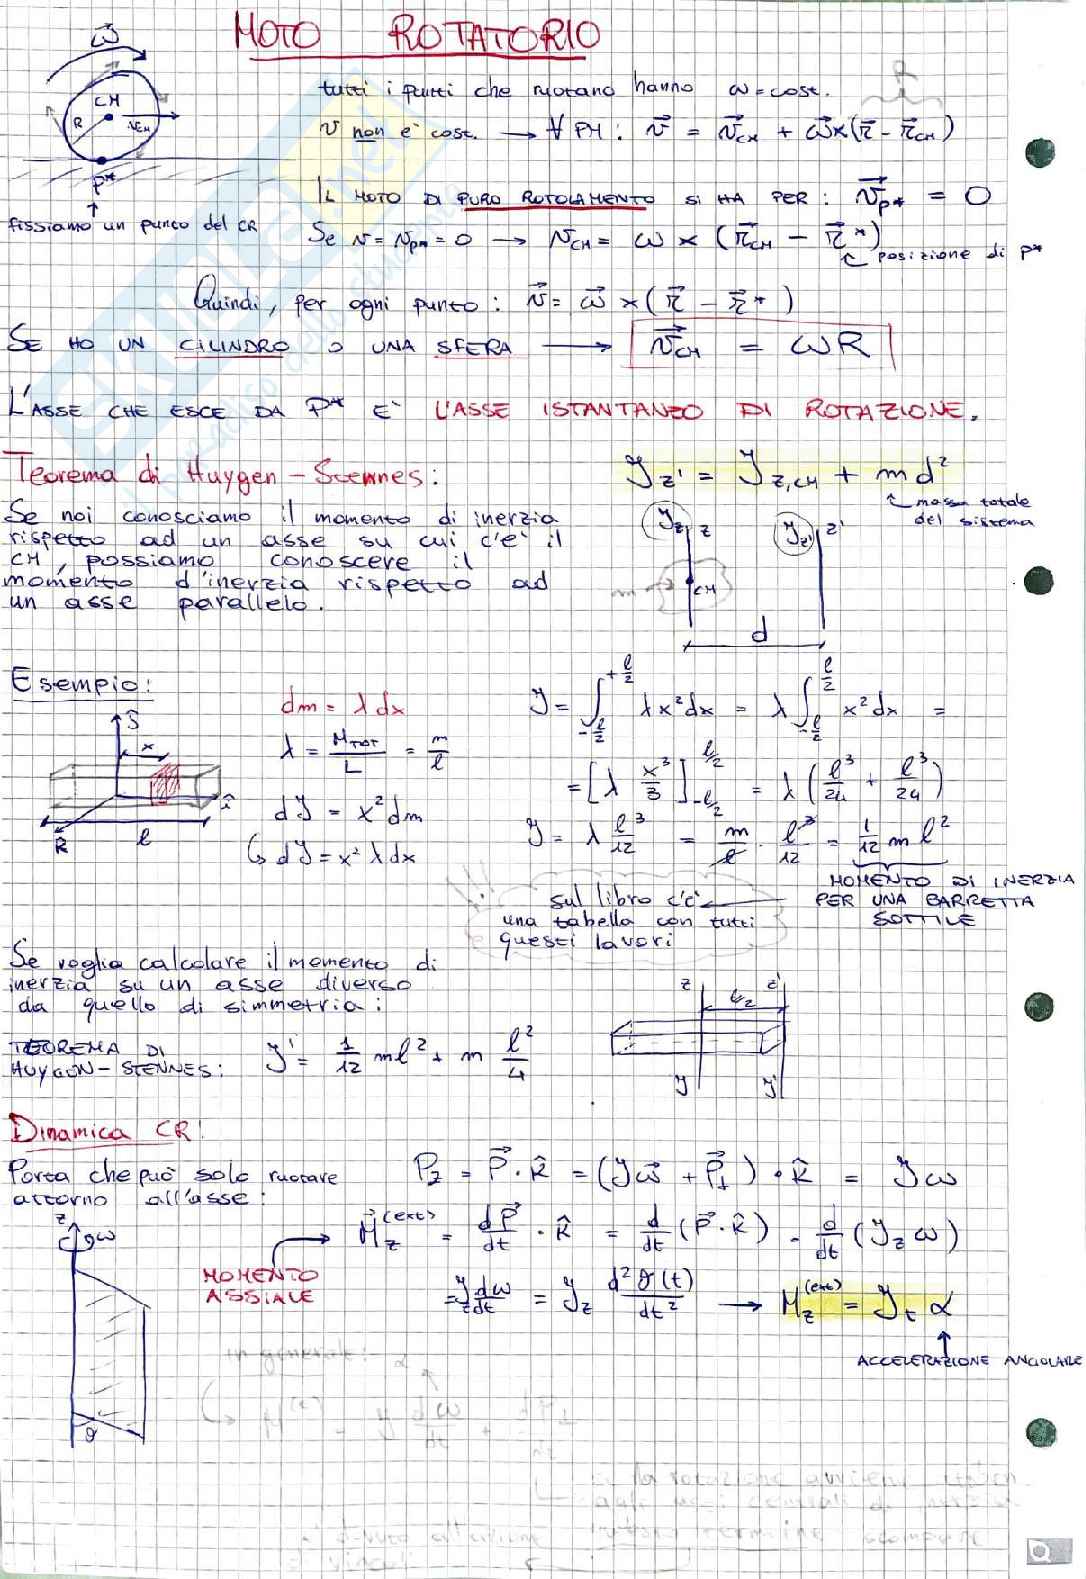 MOTO ROTATORIO
ω⃗
CM
R
v⃗CM
P*
fissiamo un punto del CR
tutti i punti che ruotano hanno ω = cost.
v non è cost. → ∀ PM : v⃗ = v⃗CM + ω⃗×(r⃗ - r⃗CM)
R
IL MOTO DI PURO ROTOLAMENTO SI HA PER: v⃗p* = 0
Se v = vp* = 0 → vCM = ω × (r⃗CM - r⃗*)
posizione di P*
Quindi, per ogni punto : v⃗ = ω⃗ × (r⃗ - r⃗*)
SE HO UN CILINDRO O UNA SFERA → v⃗CM = ωR
L'ASSE CHE ESCE DA P* E' L'ASSE ISTANTANEO DI ROTAZIONE.
Teorema di Huygen-Stennes: Iz' = Iz,CM + md²
massa totale
del sistema
Se noi conosciamo il momento di inerzia
rispetto ad un asse su cui c'è il
CM, possiamo conoscere il
momento d'inerzia rispetto ad
un asse parallelo.
Iz z Iz' z'
m CM
d
Esempio:
ŝ
x
R̂
l
dm = λ dx
λ = MTOT/L = m/l
dI = x² dm
↳ dI = x² λ dx
I = ∫_{-l/2}^{+l/2} λx²dx = λ ∫_{-l/2}^{l/2} x²dx =
= [λ x³/3]_{-l/2}^{l/2} = λ (l³/24 + l³/24)
I = λ l³/12 = m/l · l³/12 = 1/12 m l²
MOMENTO DI INERZIA
PER UNA BARRETTA
SOTTILE
sul libro c'è
una tabella con tutti
questi lavori
Se voglio calcolare il momento di
inerzia su un asse diverso
da quello di simmetria:
TEOREMA DI
HUYGEN-STENNES: I' = 1/12 ml² + m l²/4
z z'
l/2
I I'
Dinamica CR:
Porta che può solo ruotare
attorno all'asse:
z
ω
θ
Pz = P⃗ · k̂ = (Iω⃗ + P⃗⊥) · k̂ = Iω
MOMENTO
ASSIALE
M⃗z^(ext) = dP⃗/dt · k̂ = d/dt (P⃗ · k̂) = d/dt (Iz ω)
= Iz dω/dt = Iz d²θ(t)/dt² → Mz^(ext) = Iz α
ACCELERAZIONE ANGOLARE
in generale: α